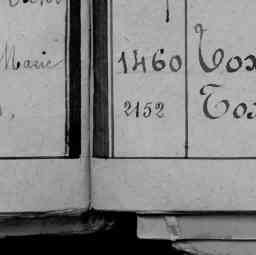 Marie
1460 Vox
2152 Tox